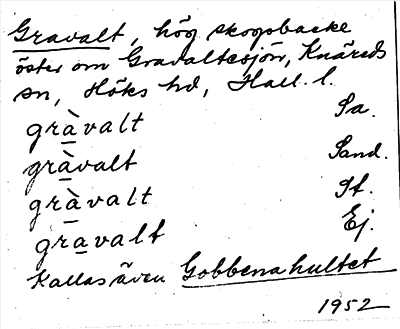 Gravalt, hög skogsbacke
öster om Gravaltesjön, Knäreds
sn, Höks hd, Hall. l.
gràvalt Sa.
gràvalt Sand.
gràvalt St.
gravalt Ej.
Kallas även Gobbenahultet
1952